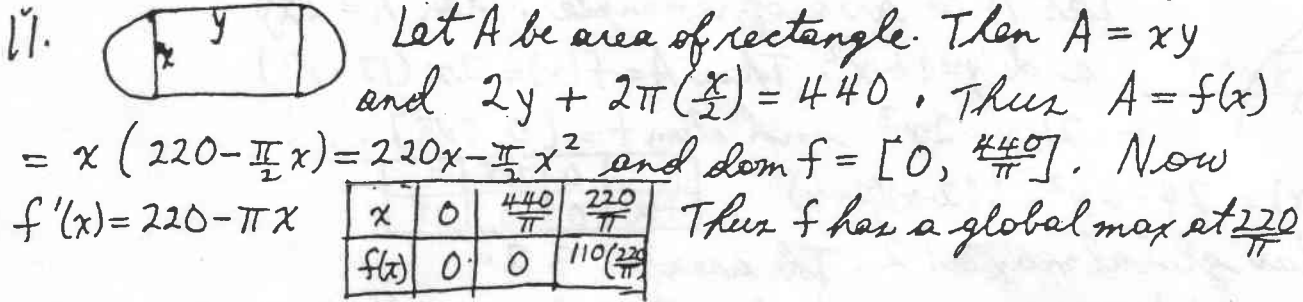 11. x y Let A be area of rectangle. Then A = xy
and 2y + 2π(x/2) = 440. Thus A = f(x)
= x (220 - π/2 x) = 220x - π/2 x² and dom f = [0, 440/π]. Now
f'(x) = 220 - πx
x 0 440/π 220/π
f(x) 0 0 110(220/π
Thus f has a global max at 220/π